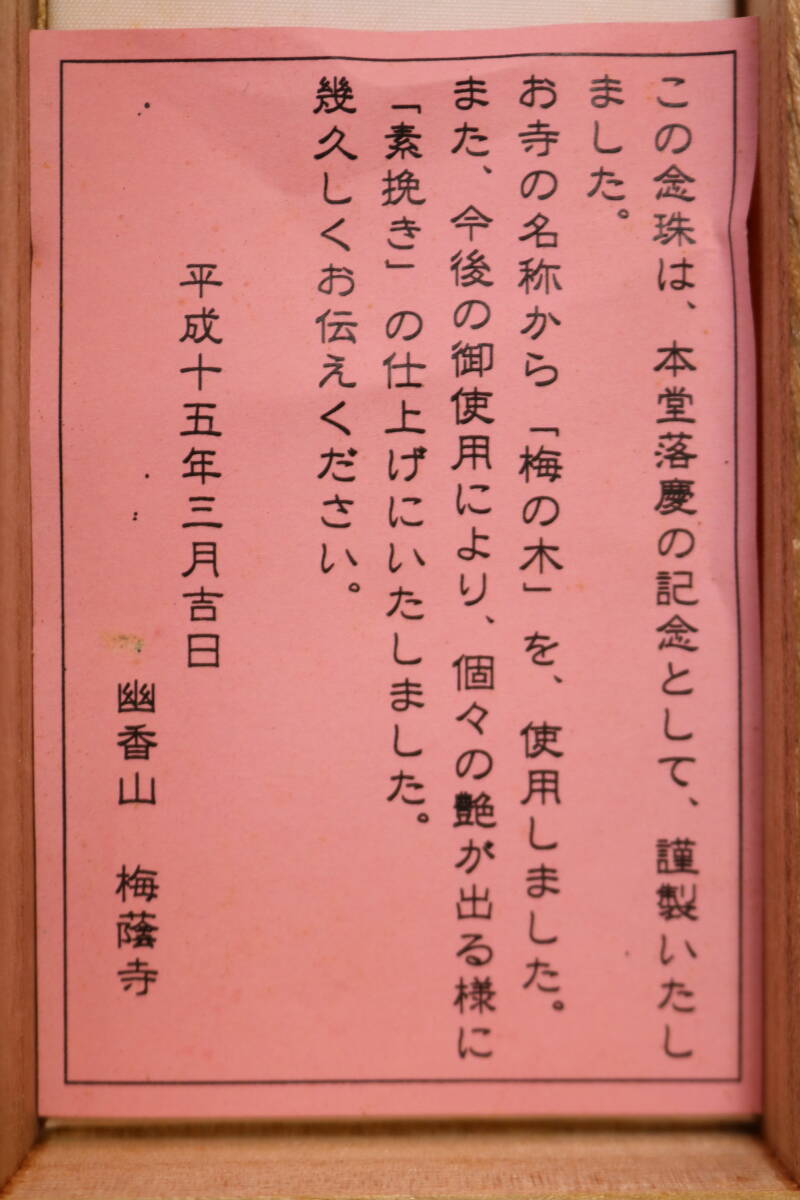 この念珠は、本堂落慶の記念として、謹製いたし
ました。
お寺の名称から「梅の木」を、使用しました。
また、今後の御使用により、個々の艶が出る様に
「素挽き」の仕上げにいたしました。
幾久しくお伝えください。
平成十五年三月吉日
幽香山　梅蔭寺